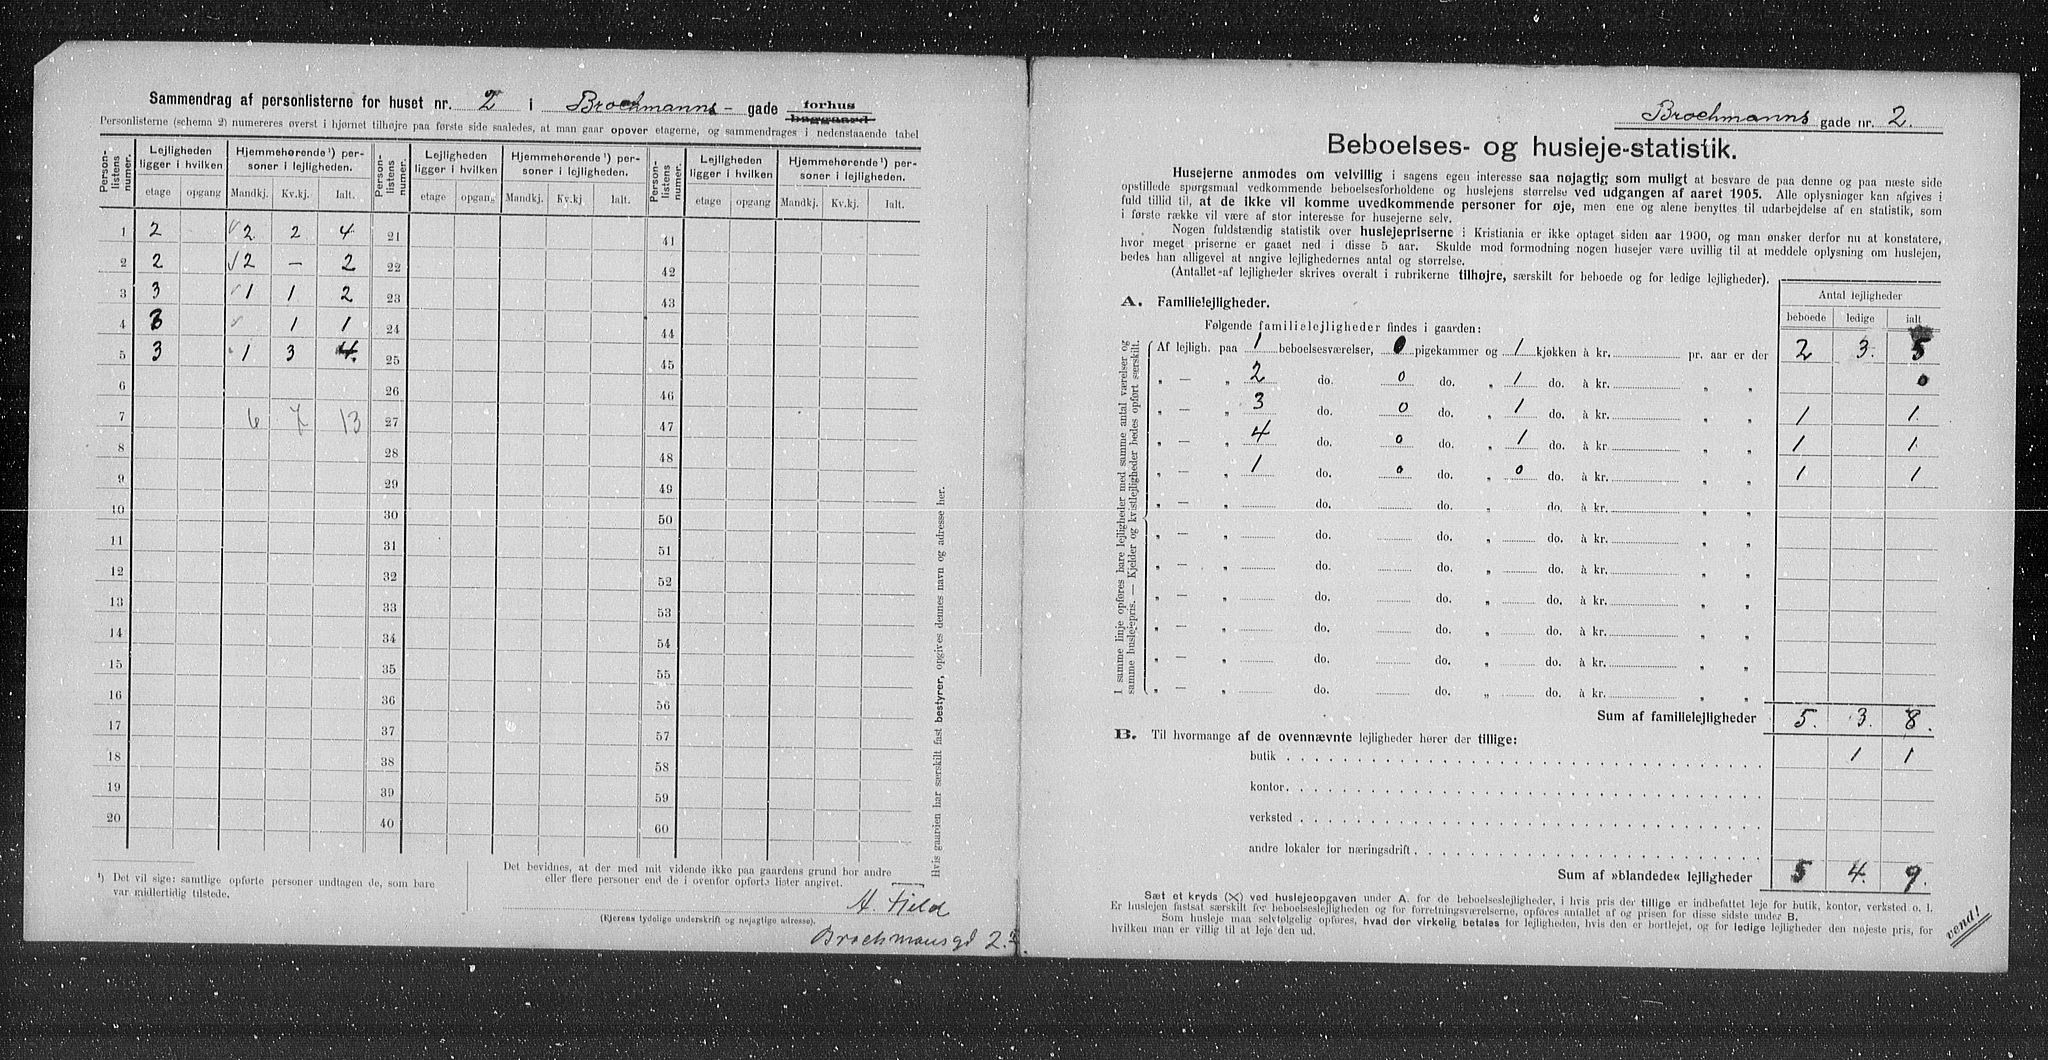 Sammendrag af personlisterne for huset nr. 2 i Brochmanns- gade forhus baggaard
Personlisterne (schema 2) numereres øverst i hjørnet tilhøjre paa første side saaledes, at man gaar opover etagerne, og sammendrages i nedenstaaende tabel
Person-listens numer. Lejligheden ligger i hvilken Hjemmehørende ¹) personer i lejligheden. Person-listens numer. Lejligheden ligger i hvilken Hjemmehørende ¹) personer i lejligheden. Person-listens numer. Lejligheden ligger i hvilken Hjemmehørende ¹) personer i lejligheden.
etage opgang Mandkj. Kv.kj. Ialt. etage opgang Mandkj. Kv.kj Ialt. etage opgang Mandkj. Kv.kj. Ialt.
1 2 2 2 4 21 41
2 2 2 — 2 22 42
3 3 1 1 2 23 43
4 3 1 1 24 44
5 3 1 3 4. 25 45
6 26 46
7 6 7 13 27 47
8 28 48
9 29 49
10 30 50
11 31 51
12 32 52
13 33 53
14 34 54
15 35 55
16 36 56
17 37 57
18 38 58
19 39 59
20 40 60
Hvis gaarden har særskilt fast bestyrer, opgives dennes navn og adresse her.
¹) Det vil sige: samtlige opførte personer undtagen de, som bare
var midlertidig tilstede.
Det bevidnes, at der med mit vidende ikke paa gaardens grund bor andre
eller flere personer end de i ovenfor opførte lister angivet.
A. Fjeld
(Ejerens tydelige underskrift og nøjagtige adresse).
Brochmansgd 2.
Brochmanns gade nr. 2.
Beboelses- og husleje-statistik.
Husejerne anmodes om velvillig i sagens egen interesse saa nøjagtig som muligt at besvare de paa denne og paa næste side
opstillede spørgsmaal vedkommende beboelsesforholdene og huslejens størrelse ved udgangen af aaret 1905. Alle oplysninger kan afgives i
fuld tillid til, at de ikke vil komme uvedkommende personer for øje, men ene og alene benyttes til udarbejdelse af en statistik, som
i første række vil være af stor interesse for husejerne selv.
Nogen fuldstændig statistik over huslejepriserne i Kristiania er ikke optaget siden aar 1900, og man ønsker derfor nu at konstatere,
hvor meget priserne er gaaet ned i disse 5 aar. Skulde mod formodning nogen husejer være uvillig til at meddele oplysning om huslejen,
bedes han alligevel at angive lejlighedernes antal og størrelse.
(Antallet af lejligheder skrives overalt i rubrikerne tilhøjre, særskilt for beboede og for ledige lejligheder).
A. Familielejligheder.
Antal lejligheder
Følgende familielejligheder findes i gaarden:
beboede ledige ialt
I samme linje opføres bare lejligheder med samme antal værelser og
samme huslejepris. — Kjelder og kvistlejligheder bedes opført særskilt.
Af lejligh. paa 1 beboelsesværelser, 0 pigekammer og 1 kjøkken à kr. pr. aar er der 2 3. 5
„ — „ 2 do. 0 do. „ 1 do. à kr. „ „ 0
„ — „ 3 do. 0 do. „ 1 do. à kr. „ „ 1 1.
„ — „ 4 do. 0 do. „ 1 do. à kr. „ „ 1 1.
„ — „ 1 do. 0 do. „ 0 do. à kr. „ „ 1 1
„ — „ do. do. „ do. à kr. „ „
„ — „ do. do. „ do. à kr. „ „
„ — „ do. do. „ do. à kr. „ „
„ — „ do. do. „ do. à kr. „ „
„ — „ do. do. „ do. à kr. „ „
„ — „ do. do. „ do. à kr. „ „
„ — „ do. do. „ do. à kr. „ „
Sum af familielejligheder 5. 3. 8.
B. Til hvormange af de ovennævnte lejligheder hører der tillige:
butik 1 1
kontor.
verksted
andre lokaler for næringsdrift
Sum af »blandede« lejligheder 5 4. 9.
Sæt et kryds (X) ved huslejeopgaven under A. for de beboelseslejligheder, i hvis pris der tillige er indbefattet leje for butik, kontor, verksted o. l.
Er huslejen fastsat særskilt for beboelseslejligheden og for forretningsværelserne, opføres antallet af og prisen for disse sidste under B.
Som husleje maa selvfølgelig opføres, hvad der virkelig betales for lejligheden, hvis den er bortlejet, og for ledige lejligheder den nøjeste pris, for
hvilken man er villig til at leje den ud.
vend!